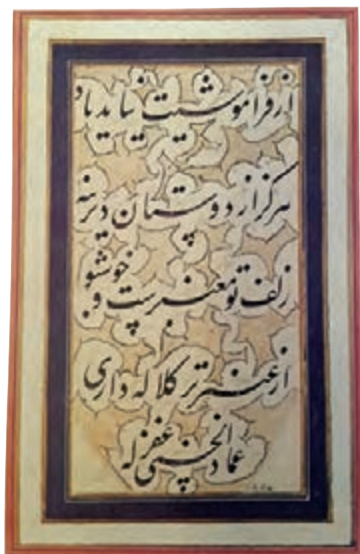 از فراموشیت نیاید یاد
هرگز از دوستان دیرینه
زلف تو معنبرست و خوشبو
از عنبر تر کلاله داری
عماد الحسنی غفر له